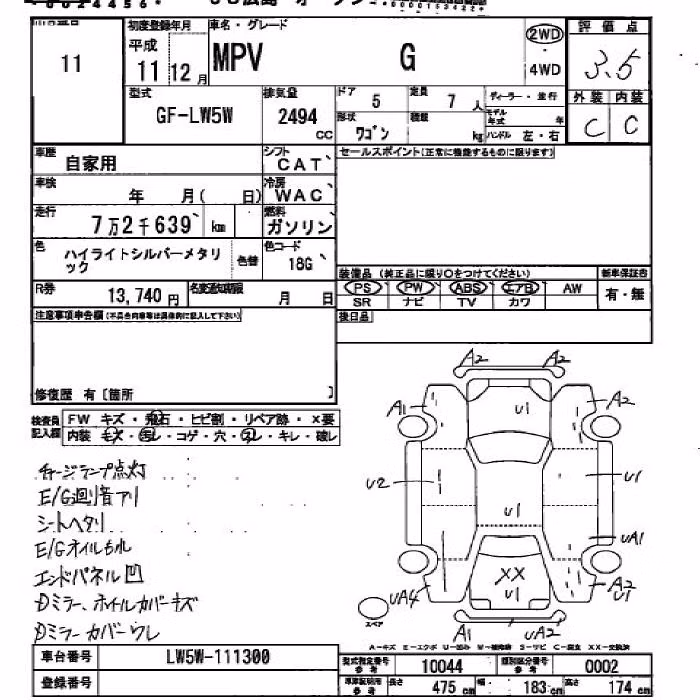 初度登録年月 車名・グレード 評価点
11 平成 11 12月 MPV G 2WD 4WD 3.5
型式 GF-LW5W 排気量 2494 CC ドア 5 定員 7人 ディーラー・並行 外装 内装
形状 ワゴン 積載 kg モデル年式 年 ハンドル 左・右 C C
車歴 自家用 シフト CAT セールスポイント(正常に機能するものに限ります)
車検 年 月( 日) 冷房 WAC
走行 7万2千639 km 燃料 ガソリン
色 ハイライトシルバーメタリック 色替 色コード 18G
装備品 (純正品に限り○をつけてください) 新車保証書
R券 13,740円 名変通知期限 月 日 PS PW ABS エアB AW 有・無
SR ナビ TV カワ
注意事項申告欄(不具合内容等は具体的に記入して下さい) 後日品
修復歴 有〔箇所 〕
検査員記入欄 FW キズ・飛石・ヒビ割・リペア跡・X要
内装 キズ・汚レ・コゲ・穴・スレ・キレ・破レ
チャージランプ点灯
E/G廻り音アリ
シートヘタリ
E/Gオイルもれ
エンドパネル凹
Dミラー、ホイルカバーキズ
Dミラーカバーワレ
A2 A2
A1 U1 A2
U2 U1 U1
UA1
XX U1
UA4 A2 U1
スペア A1 UA2
A-キズ E-エクボ U-凹み W-補修跡 S-サビ C-腐食 XX-交換済
車台番号 LW5W-111300 型式指定番号 参考 10044 類別区分番号 参考 0002
登録番号 車庫証明用 参考 長さ 475cm 幅 183cm 高さ 174cm